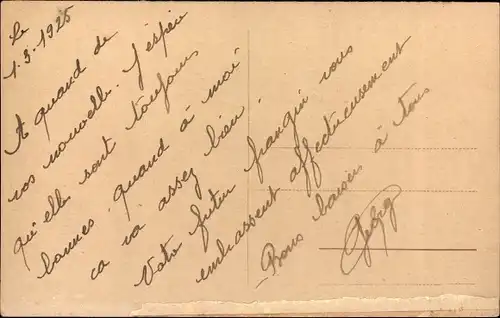 Le
1.3.1925
A quand de
vos nouvelle. J'espère
qu'elle sont toujours
bonnes. quand à moi
ca va assez bien.
Votre futur frangin vous
embrassent affectueusement
Bons baisers à tous